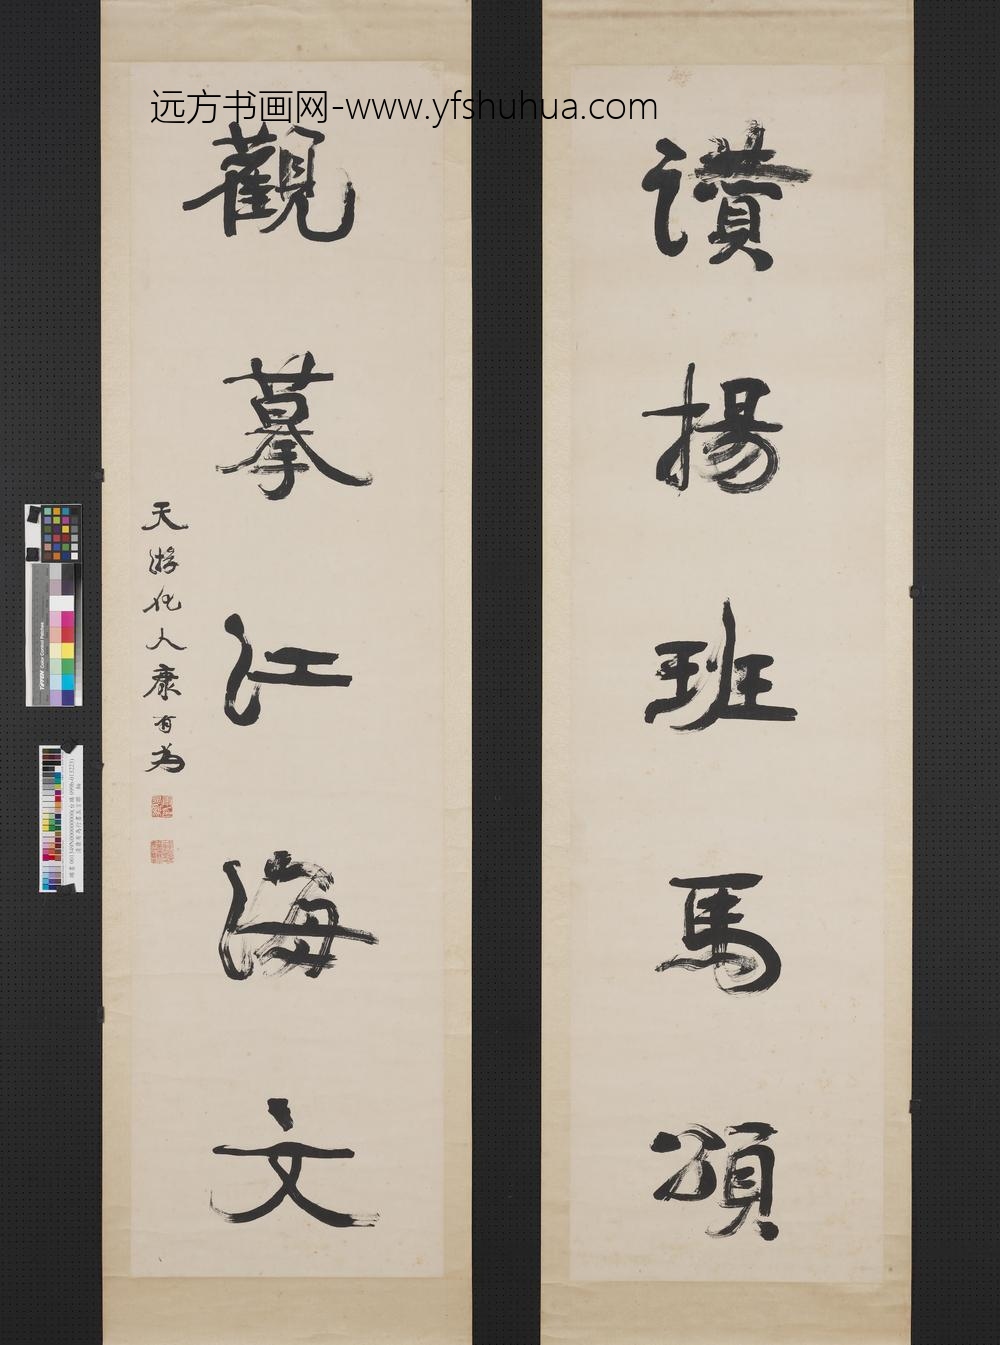 远方书画网-www.yfshuhua.com
讚揚班馬頌
觀摹江海文
天游化人康有為